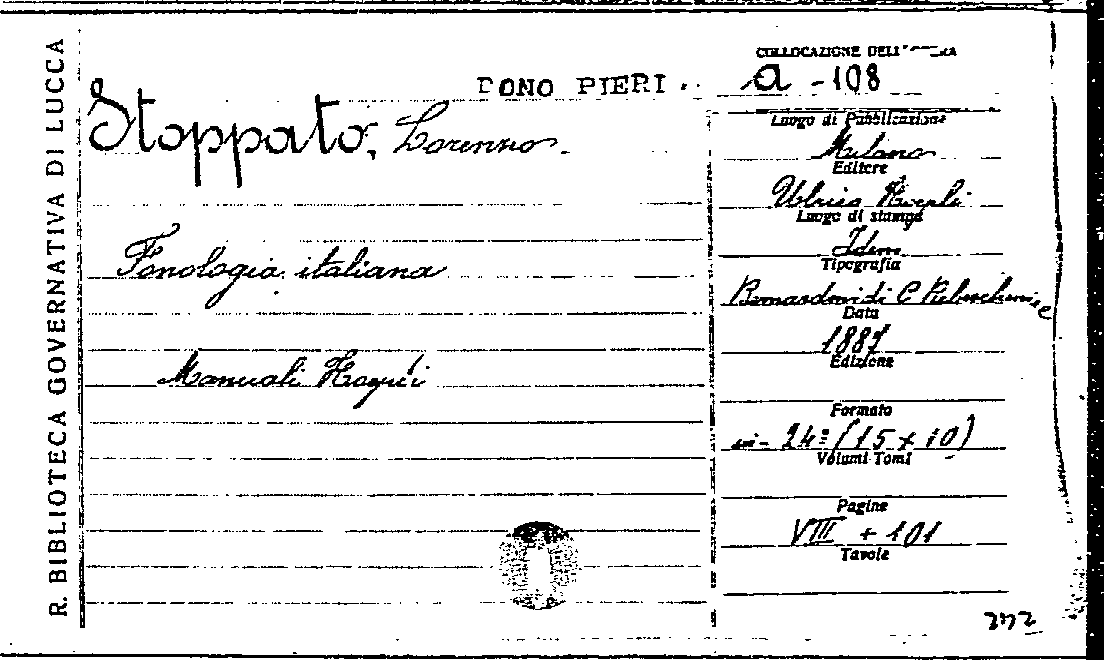 R. BIBLIOTECA GOVERNATIVA DI LUCCA
COLLOCAZIONE DELL'
DONO PIERI.
a - 108
Stoppato, Lorenzo.
Fonologia italiana
Manuali Hoepli
Luogo di Pubblicazione
Milano
Editore
Ulrico Hoepli
Luogo di stampa
Idem
Tipografia
Bernardoni di C Rebeschini e C
Data
1887
Edizione
Formato
in - 24º (15 x 10)
Volumi Tomi
Pagine
VIII + 101
Tavole